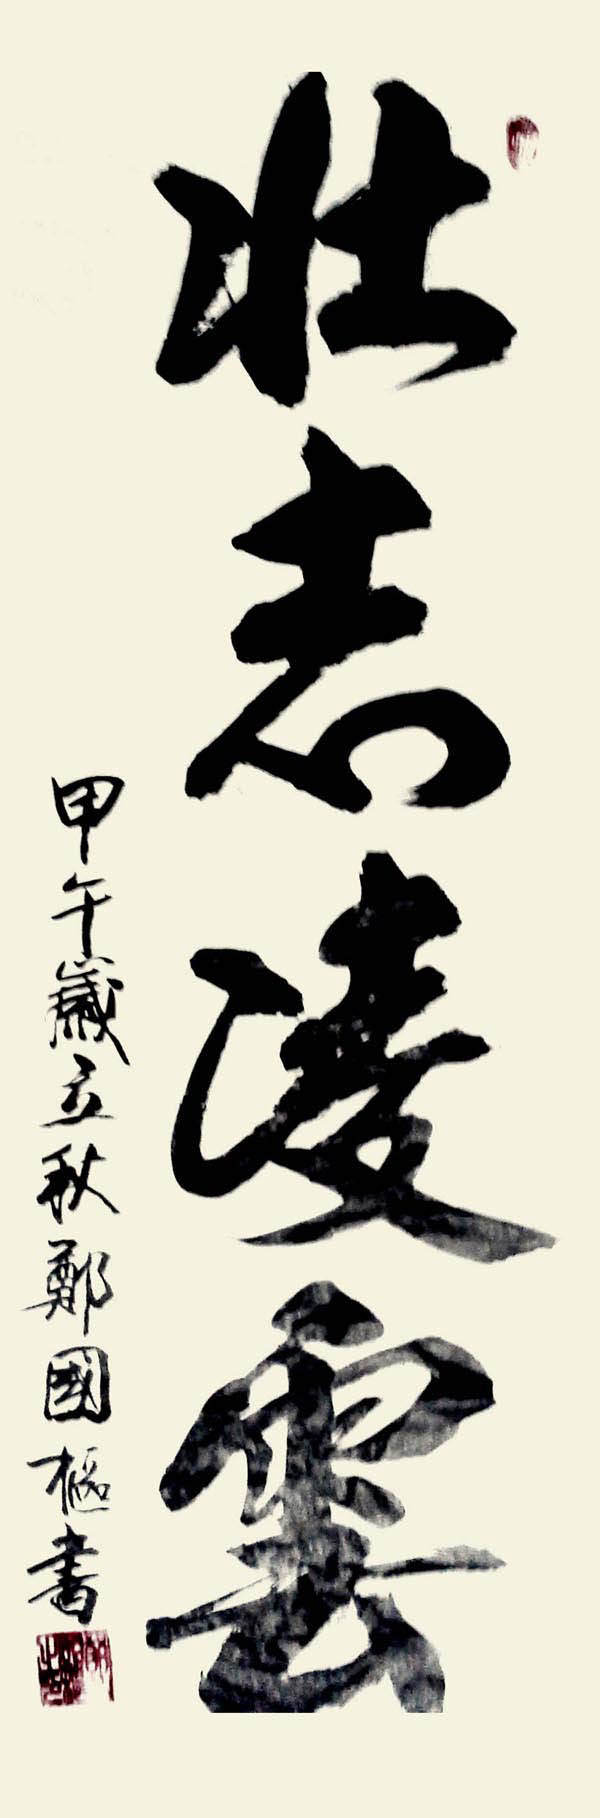 壯志凌雲
甲午歲立秋鄭國樞書